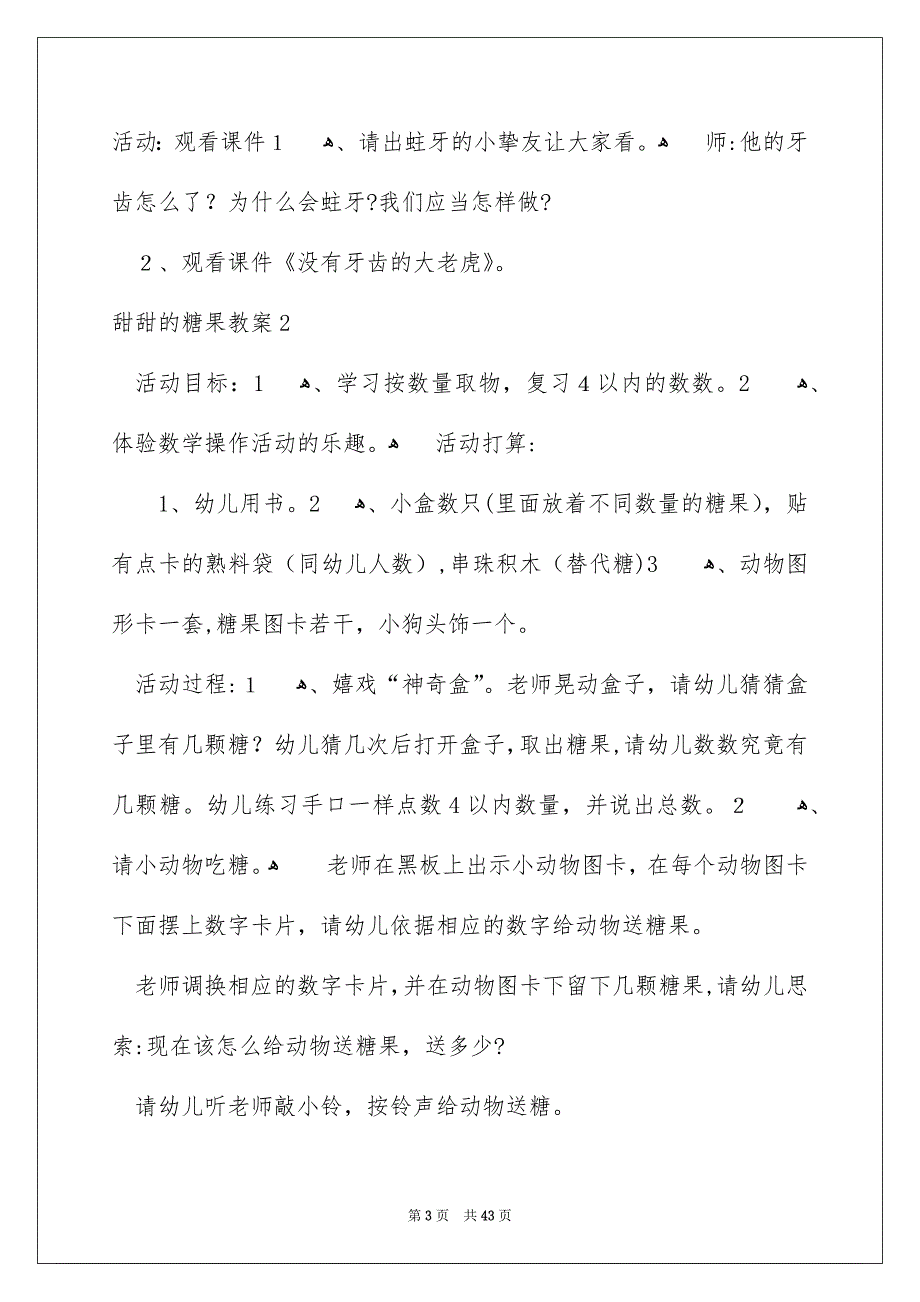 活动：观看课件1 ﻫ、请出蛀牙的小挚友让大家看。ﻫ 师:他的牙
齿怎么了？为什么会蛀牙?我们应当怎样做?
2、观看课件《没有牙齿的大老虎》。
甜甜的糖果教案2
活动目标：1 ﻫ、学习按数量取物，复习4以内的数数。2 ﻫ、
体验数学操作活动的乐趣。ﻫ 活动打算:
1、幼儿用书。2 ﻫ、小盒数只(里面放着不同数量的糖果），贴
有点卡的熟料袋（同幼儿人数）,串珠积木（替代糖)3 ﻫ、动物图
形卡一套,糖果图卡若干，小狗头饰一个。
活动过程: 1 ﻫ、嬉戏“神奇盒”。老师晃动盒子，请幼儿猜猜盒
子里有几颗糖？幼儿猜几次后打开盒子,取出糖果,请幼儿数数究竟有
几颗糖。幼儿练习手口一样点数4以内数量，并说出总数。 2 ﻫ、
请小动物吃糖。ﻫ 老师在黑板上出示小动物图卡，在每个动物图卡
下面摆上数字卡片，请幼儿依据相应的数字给动物送糖果。
老师调换相应的数字卡片,并在动物图卡下留下几颗糖果,请幼儿思
索:现在该怎么给动物送糖果，送多少?
请幼儿听老师敲小铃，按铃声给动物送糖。
第 3 页 共 43 页